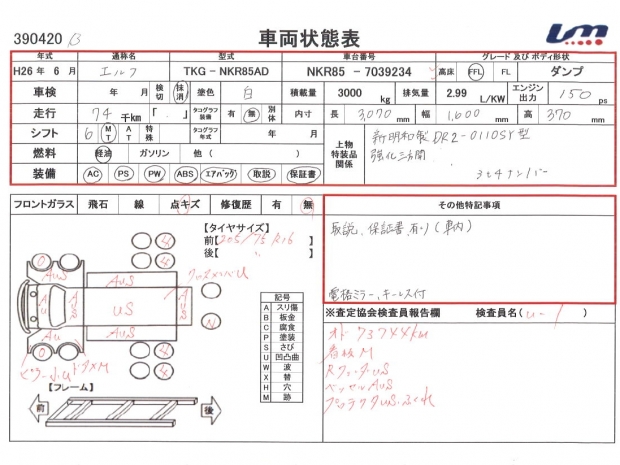 390420 B 車両状態表 Lm
年式 通称名 型式 車台番号 グレード 及び ボディ形状
H26 年 6 月 エルフ TKG - NKR85AD NKR85 - 7039234 高床 FFL FL ダンプ
車検 年 月 検切 抹消 塗色 白 積載量 3000 kg 排気量 2.99 L/KW エンジン出力 150 ps
走行 74 千km 「 . 」 タコグラフ装備 有 無 別体 内寸 長 3,070 mm 幅 1,600 mm 高 370 mm
シフト 6 MT AT 特殊 タコグラフ年式 年 月 上物特装品関係 新明和製 DR2-0110SY型
燃料 軽油 ガソリン 他 ( ) 強化三方開
装備 AC PS PW ABS エアバッグ 取説 保証書 3ヒキナンバー
フロントガラス 飛石 線 点キズ 修復歴 有 無 その他特記事項
【タイヤサイズ】 取説、保証書、有り(車内)
前【205/75R16 】
後【 〃 】
電格ミラー、キーレス付
AuS
AuS
uS
Au
AuS
AuS
AuS
記号
A スリ傷
B 板金
C 腐食
P 塗装
S さび
U 凹凸曲
W 波
X 替
H 穴
M 跡
【フレーム】
前 後
※査定協会検査員報告欄 検査員名( u-1 )
オド 73744km
看板M
Rフェンダ uS
ベッセル AuS